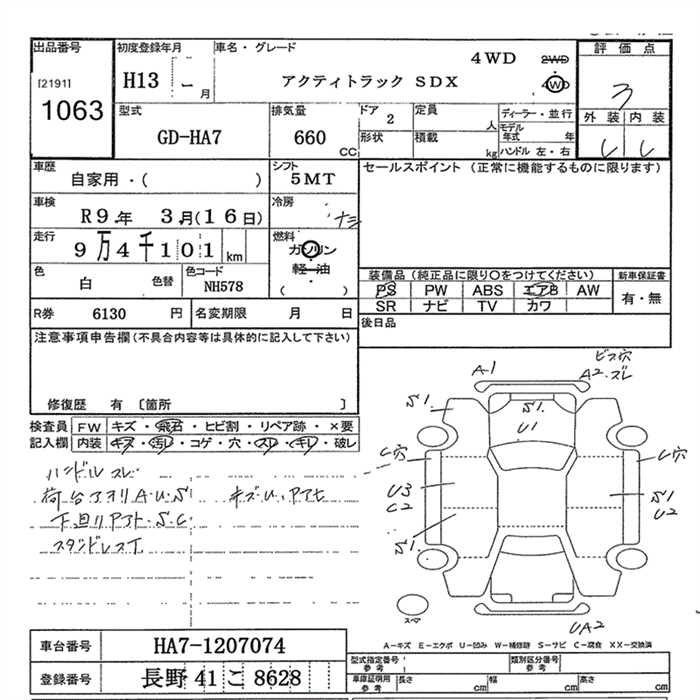 出品番号 初度登録年月 車名・グレード 4WD 2WD 評価点
[2191] H13 年 月 アクティトラック SDX 4WD 3
1063
型式 排気量 ドア 2 定員 人 ディーラー・並行 外装 内装
GD-HA7 660 CC 形状 積載 kg モデル年式 年 ハンドル 左・右
車歴 自家用・( ) シフト 5MT セールスポイント (正常に機能するものに限ります)
車検 R9年 3月(16日) 冷房 ナシ
走行 9万4千101 km 燃料 ガソリン
軽油
( )
色 白 色替 色コード NH578 装備品 (純正品に限り○をつけてください) 新車保証書
PS PW ABS エアB AW 有・無
SR ナビ TV カワ
R券 6130 円 名変期限 月 日 後日品
注意事項申告欄 (不具合内容等は具体的に記入して下さい)
修復歴 有 〔箇所 〕
検査員 FW キズ・飛石・ヒビ割・リペア跡・×要
記入欄 内装 キズ・汚レ・コゲ・穴・スレ・キレ・破レ
ハンドル スレ
荷台アオリ A.U.S キズ.U.アテセ
下回リ S.C
A1
ビス穴
A2.ズレ
S1
S1.
U1
U穴
U穴
U3
C2
S1
U2
S1.
スペア
UA2
A−キズ E−エクボ U−凹み W−補修跡 S−サビ C−腐食 XX−交換済
車台番号 HA7-1207074
登録番号 長野 41 こ 8628
型式指定番号 参考 類別区分番号 参考
車庫証明用 参考 長さ cm 幅 cm 高さ cm